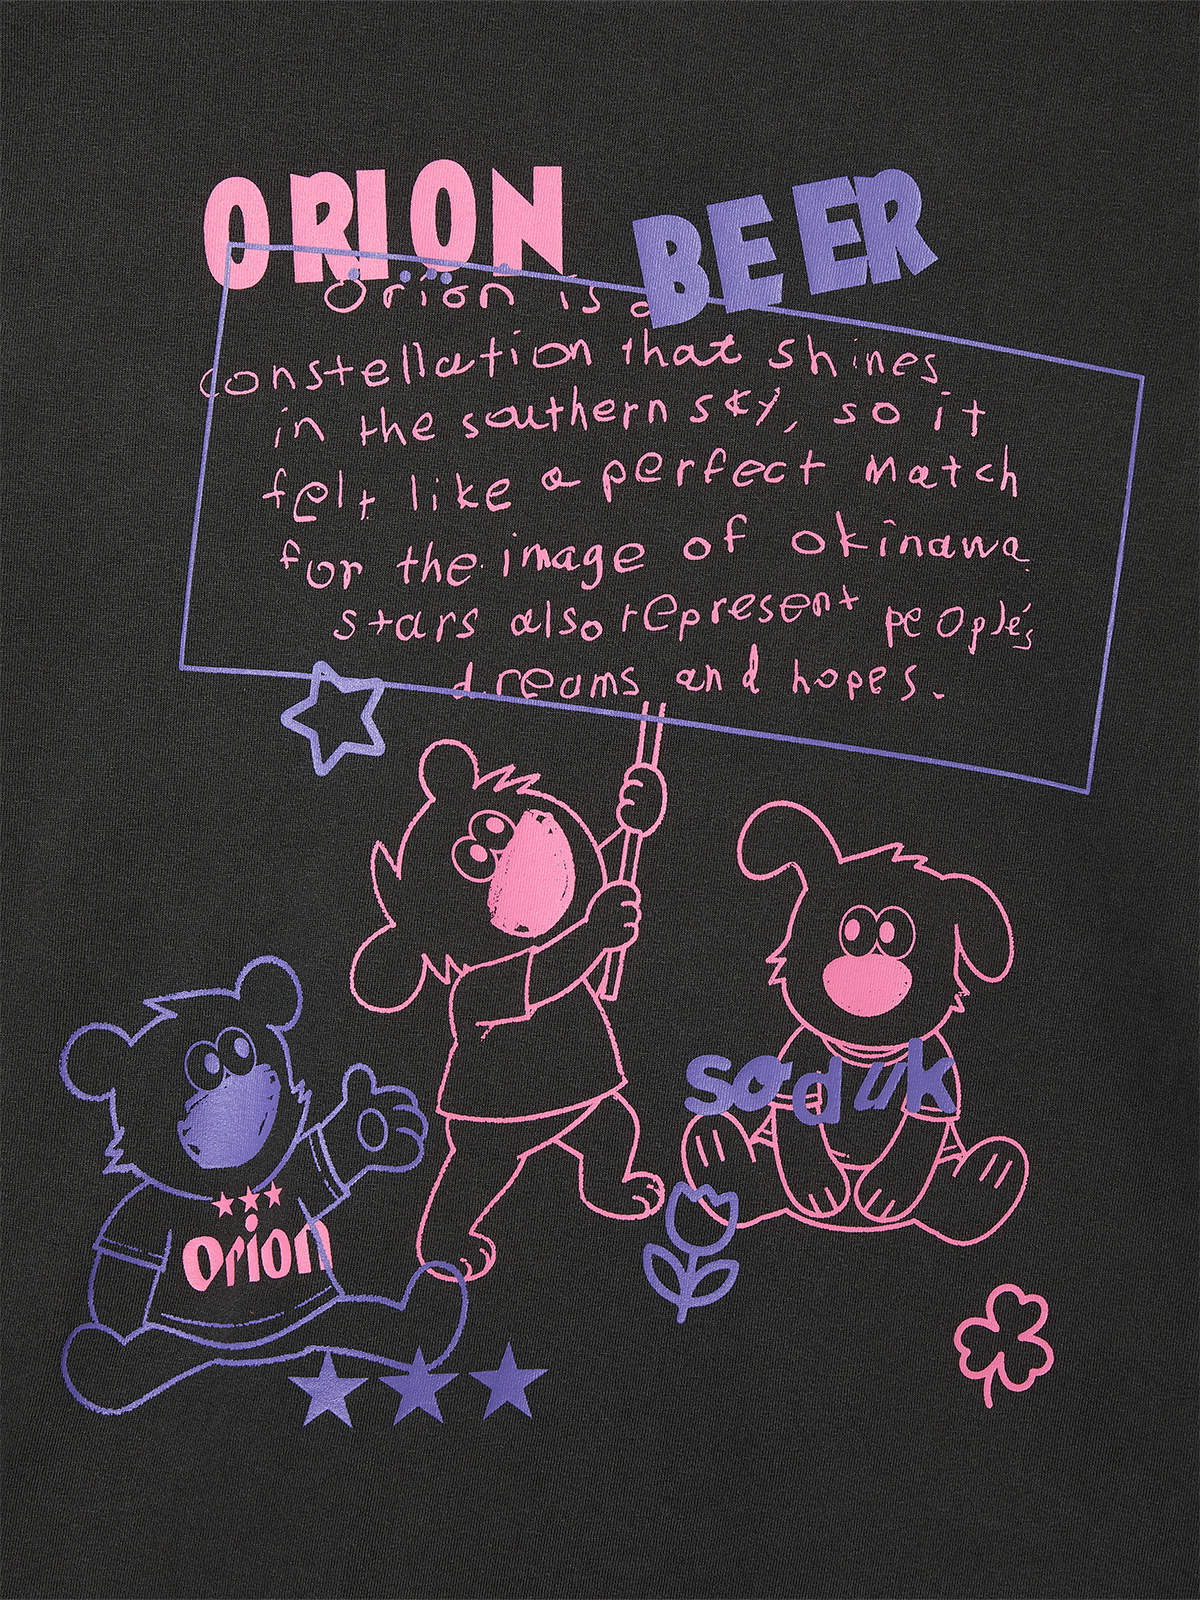 ORION BEER
Orion is a
constellation that shines
in the southern sky, so it
felt like a perfect match
for the image of okinawa
stars also represent people's
dreams and hopes.
soduk
Orion